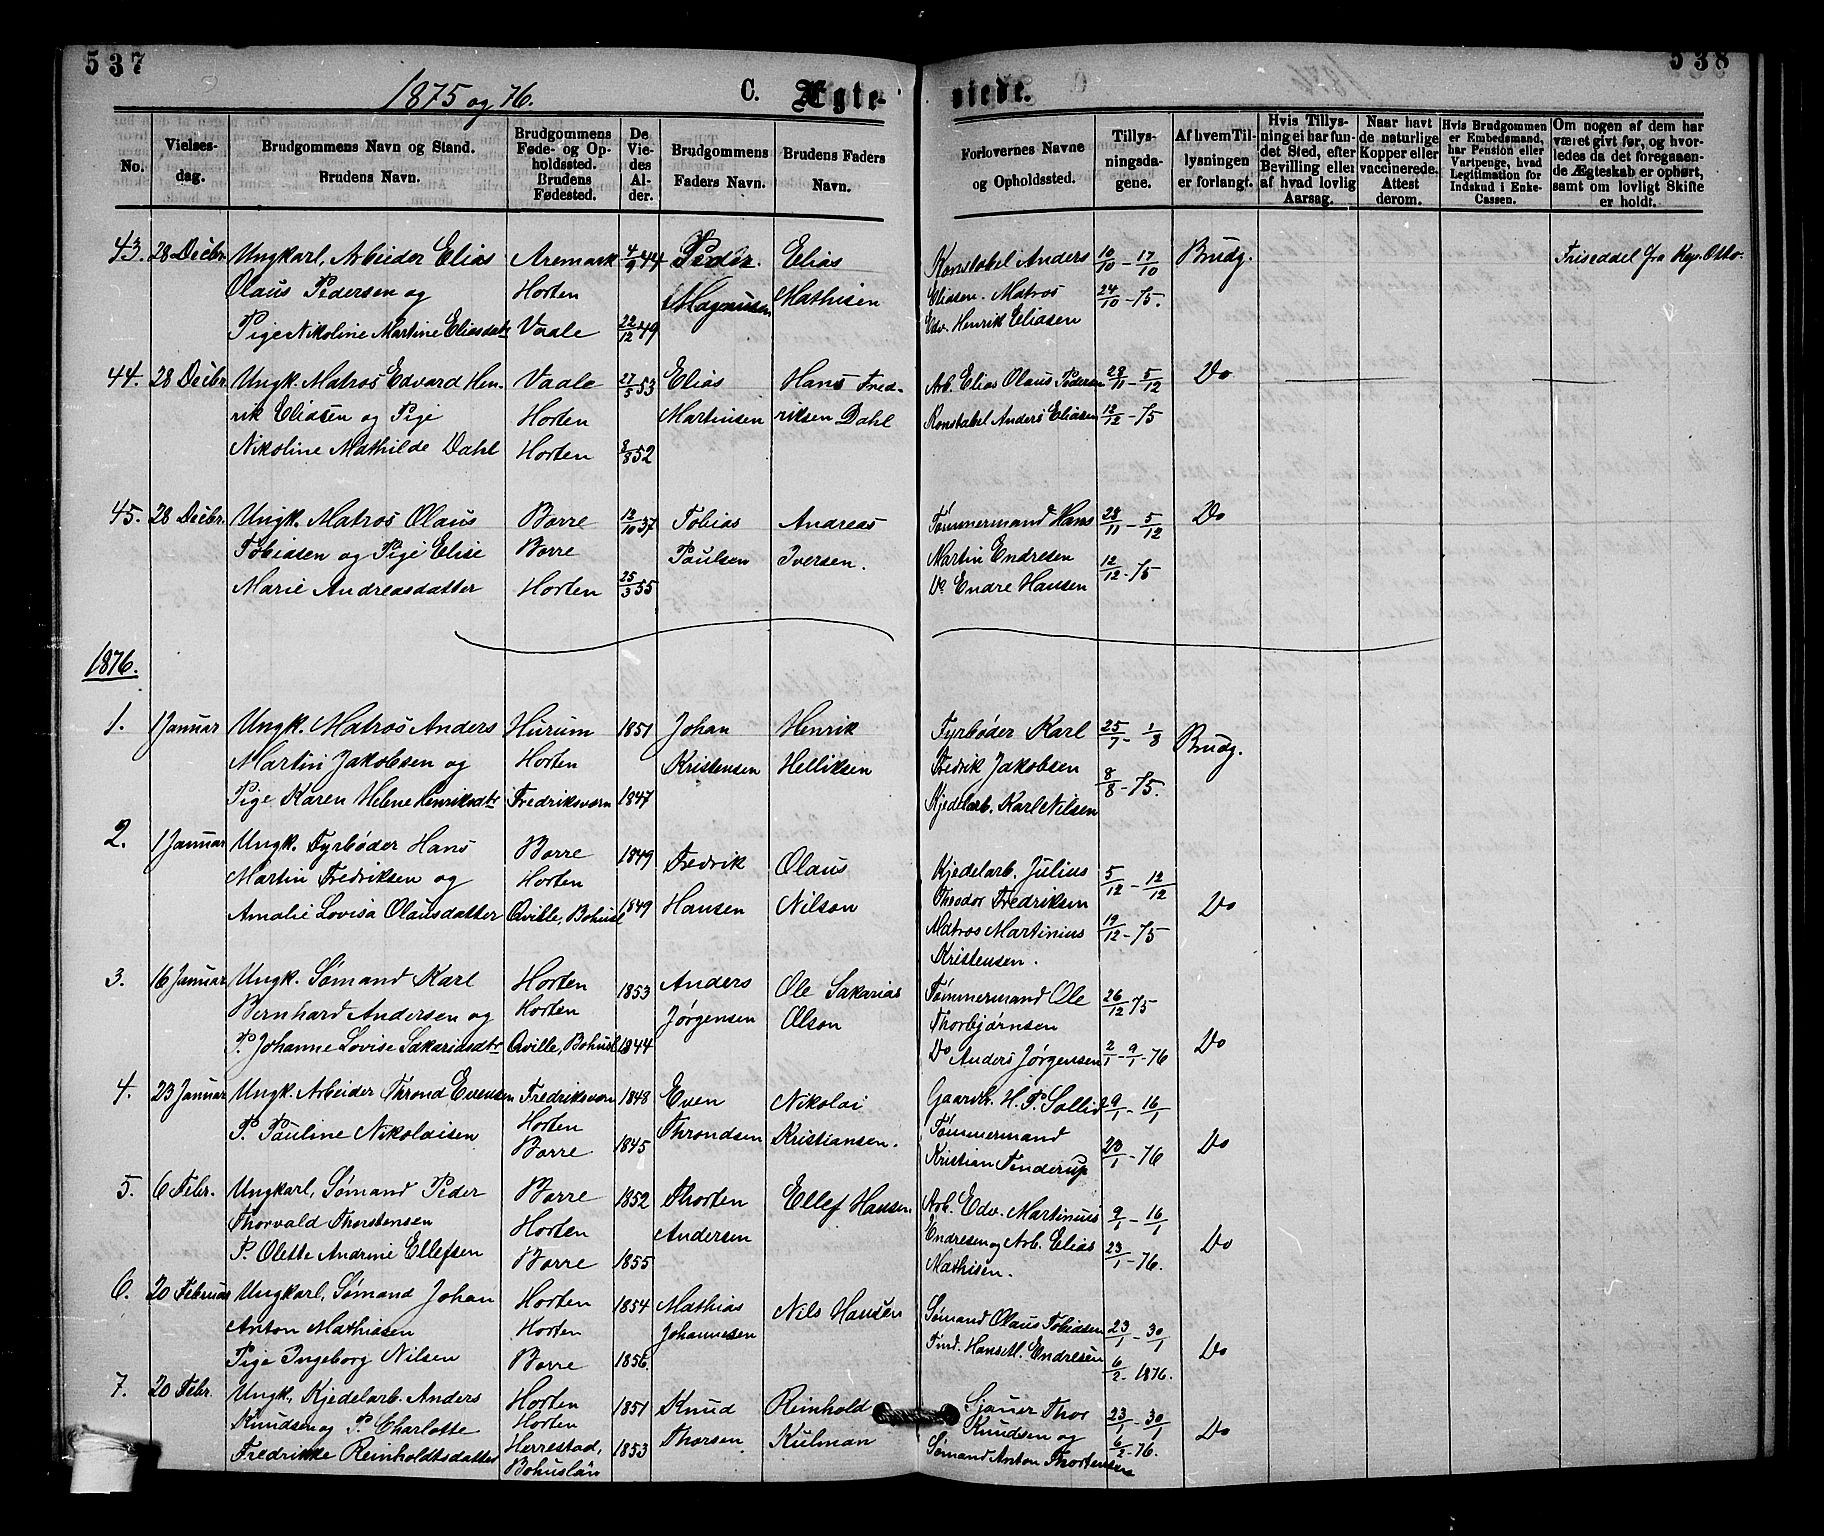 537
538
1875 og 76.
C. Ægte-
viede.
No.
Vielses-
dag.
Brudgommens Navn og Stand.
Brudens Navn.
Brudgommens
Føde- og Op-
holdssted.
Brudens
Fødested.
De
Vie-
des
Al-
der.
Brudgommens
Faders Navn.
Brudens Faders
Navn.
Forlovernes Navne
og Opholdssted.
Tillys-
ningsda-
gene.
Af hvem Til-
lysningen
er forlangt.
Hvis Tillys-
ning ei har fun-
det Sted, efter
Bevilling eller
af hvad lovlig
Aarsag.
Naar havt
de naturlige
Kopper eller
vaccinerede.
Attest
derom.
Hvis Brudgommen
er Embedsmand,
har Pension eller
Vartpenge, hvad
Legitimation for
Indskud i Enke-
Cassen.
Om nogen af dem har
været givt før, og hvor-
ledes da det foregaaen-
de Ægteskab er ophørt,
samt om lovligt Skifte
er holdt.
43. 28 Decbr. Ungkarl, Arbeider Elias Aremark 4/9 44 Peder Elias Konstabel Anders 10/10 - 17/10 Brudg. Friseddel fra
Olaus Pedersen og Horten Magnusen Mathisen Eliasen. Matros 24/10 - 75.
Pige Nikoline Martine Eliasdatr Vaale 22/12 49 Edv. Henrik Eliasen
44. 28 Decbr. Ungk. Matros Edvard Hen- Vaale 27/5 53 Elias Hans Fred- Arb. Elias Olaus Pedersen 28/11 - 5/12 Do
rik Eliasen og Pige Horten Martinsen riksen Dahl Konstabel Anders Eliasen 12/12 - 75
Nikoline Mathilde Dahl Horten 8/8 52
45. 28 Decbr. Ungk. Matros Olaus Borre 12/10 37 Tobias Andreas Tømmermand Hans 28/11 - 5/12 Do
Tobiasen og Pige Elise Borre Paulsen Iversen. Martin Endresen 12/12 - 75
Marie Andreasdatter Horten 25/3 55 Do Endre Hansen
1876.
1. 1 Januar Ungk. Matros Anders Hurum 1851 Johan Henrik Fyrbøder Karl 25/7 - 1/8 Brudg.
Martin Jakobsen og Horten Kristensen Helliksen Fredrik Jakobsen 8/8 - 75.
Pige Karen Helene Henriksdtr Fredriksværn 1847 Kjedelarb. Karl Nilsen
2. 1 Januar Ungk. Fyrbøder Hans Borre 1849 Fredrik Olaus Kjedelarb. Julius 5/12 - 12/12
Martin Fredriksen og Horten Hansen Nilson Theodor Fredriksen 19/12 - 75 Do
Amalie Lovisa Olausdatter Qville, Bohusl 1849 Matros Martinius
Kristensen.
3. 16 Januar Ungk. Sømand Karl Horten 1853 Anders Ole Sakarias Tømmermand Ole 26/12 75
Bernhard Andersen og Horten Jørgensen Olson Thorbjørnsen
P. Johanne Lovise Sakariasdtr Qville, Bohusl 1844 Do Anders Jørgensen 2/1 - 9/1 - 76 Do
4. 23 Januar Ungk. Arbeider Thrond Evensen Fredriksværn 1848 Even Nikolai Gaardbr. H. P. Sollid 9/1 - 16/1
P. Pauline Nikolaisen Horten Throndsen Kristiansen. Tømmermand
Borre 1845 Kristian Tenderup 20/1 - 76 Do
5. 6 Febr. Ungkarl, Sømand Peder Borre 1852 Thorten Ellef Hansen Arb. Edv. Martinius 9/1 - 16/1
Thorvald Thorstensen Horten Andersen Endresen og Arb. Elias 23/1 - 76. Do
P. Olette Andrine Ellefsen Borre 1855 Mathisen.
6. 20 Februar Ungkarl, Sømand Johan Horten 1854 Mathias Nils Hansen Sømand Olaus Tobiasen 23/1 - 30/1
Anton Mathiasen Horten Johannesen Tmd. Hans M. Endresen 6/2 - 1876. Do
Pige Ingeborg Nilsen Borre 1856.
7. 20 Febr. Ungk. Kjedelarb. Anders Horten 1851 Knud Reinhold Sjauer Thor 23/1 - 30/1
Knudsen og P. Charlotte Horten Thorsen Kulman Knudsen og 6/2 - 76. Do
Fredrikke Reinholdtsdatter Herrestad, 1853 Sømand Anton Thortensen
Bohuslän